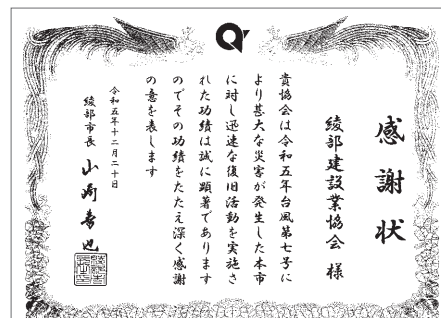 感謝状
綾部建設業協会 様
貴協会は令和五年台風第七号に
より甚大な災害が発生した本市
に対し迅速な復旧活動を実施さ
れた功績は誠に顕著であります
のでその功績をたたえ深く感謝
の意を表します
令和五年十二月二十日
綾部市長 山崎善也